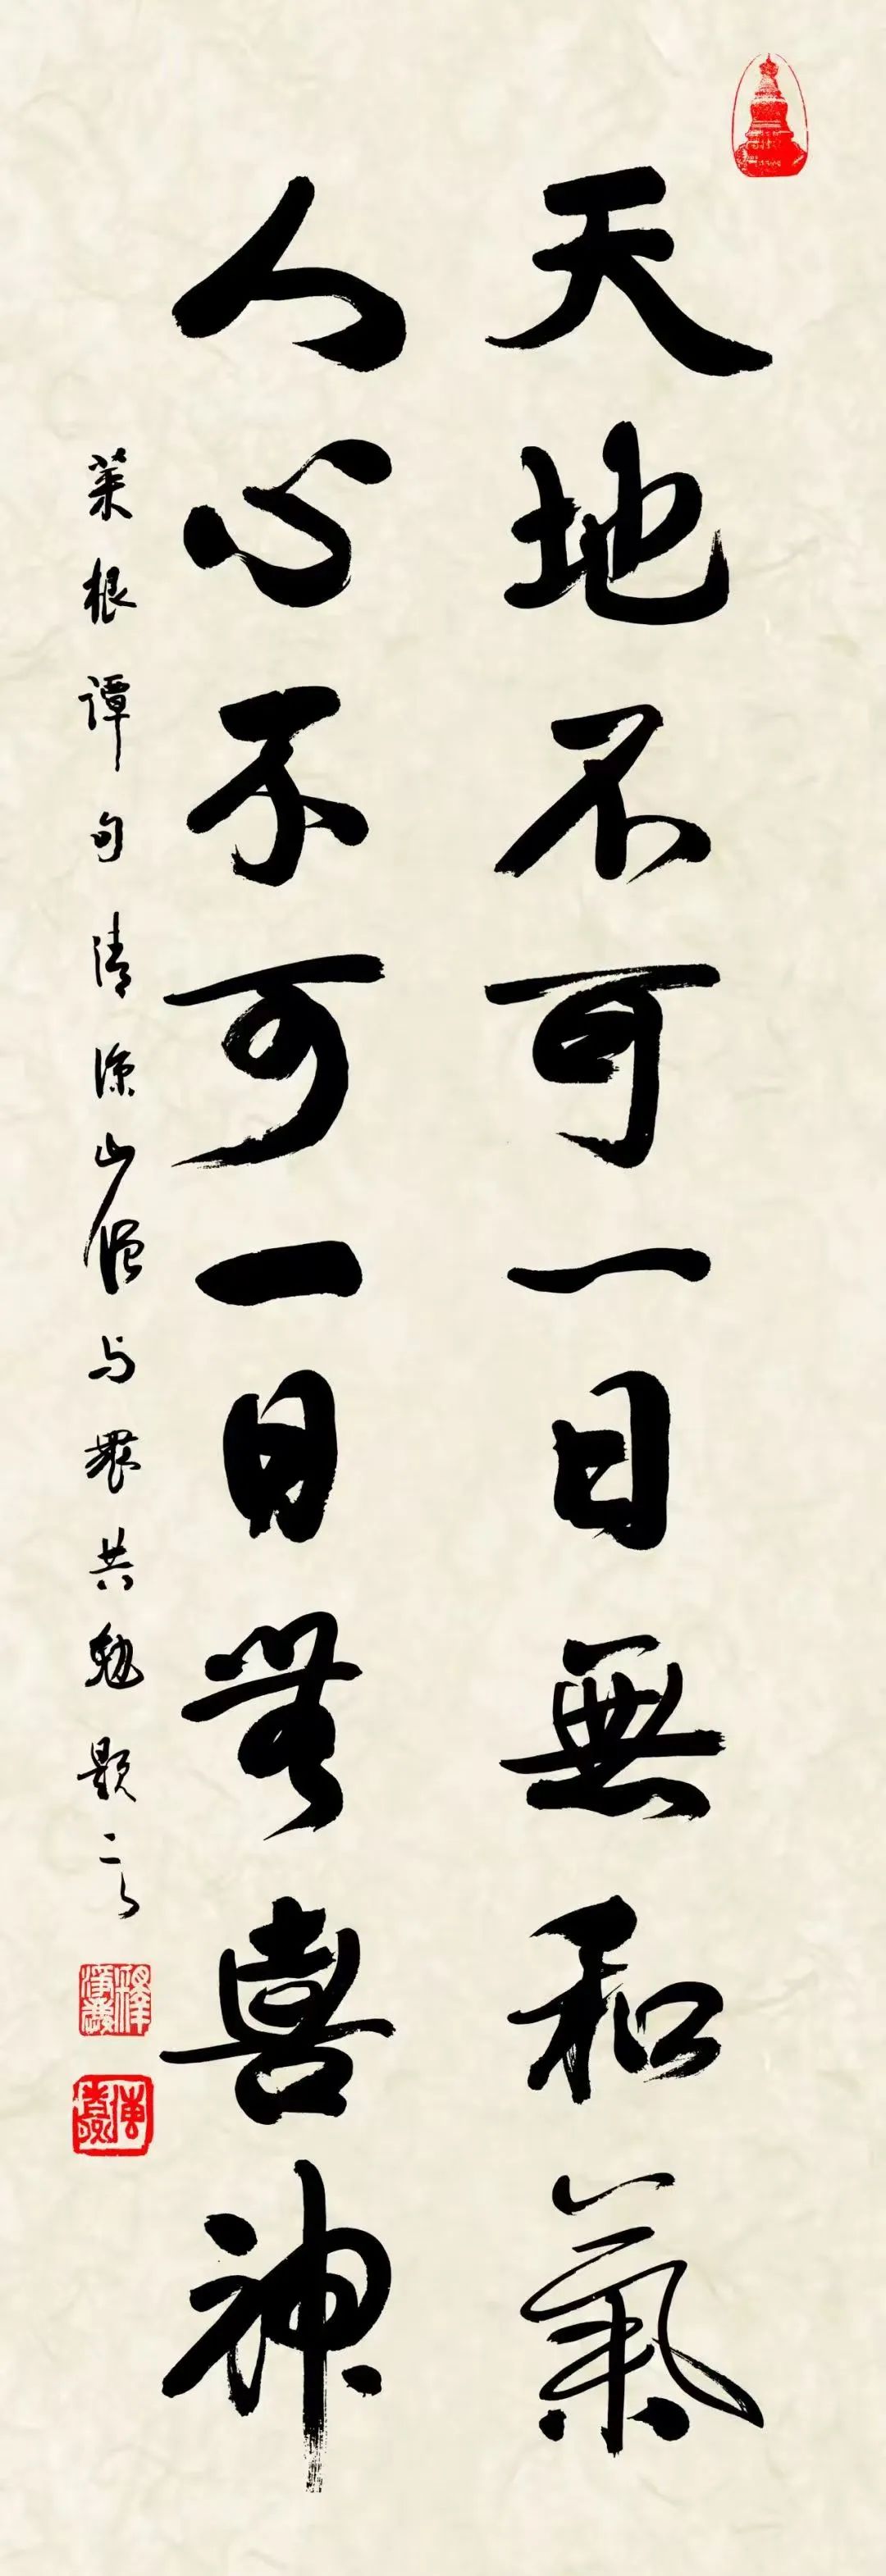 天地不可一日無和氣
人心不可一日無喜神
菜根谭句清涼山僧与衆共勉题